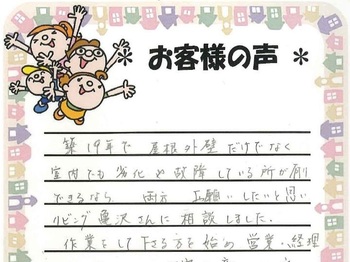 * お客様の声 *
築19年で 屋根外壁だけでなく
室内でも劣化や故障している所が
できるなら 両方 お願いしたいと思い
リビング亀沢さんに相談しました.
作業をして下さる方を始め営業・経理